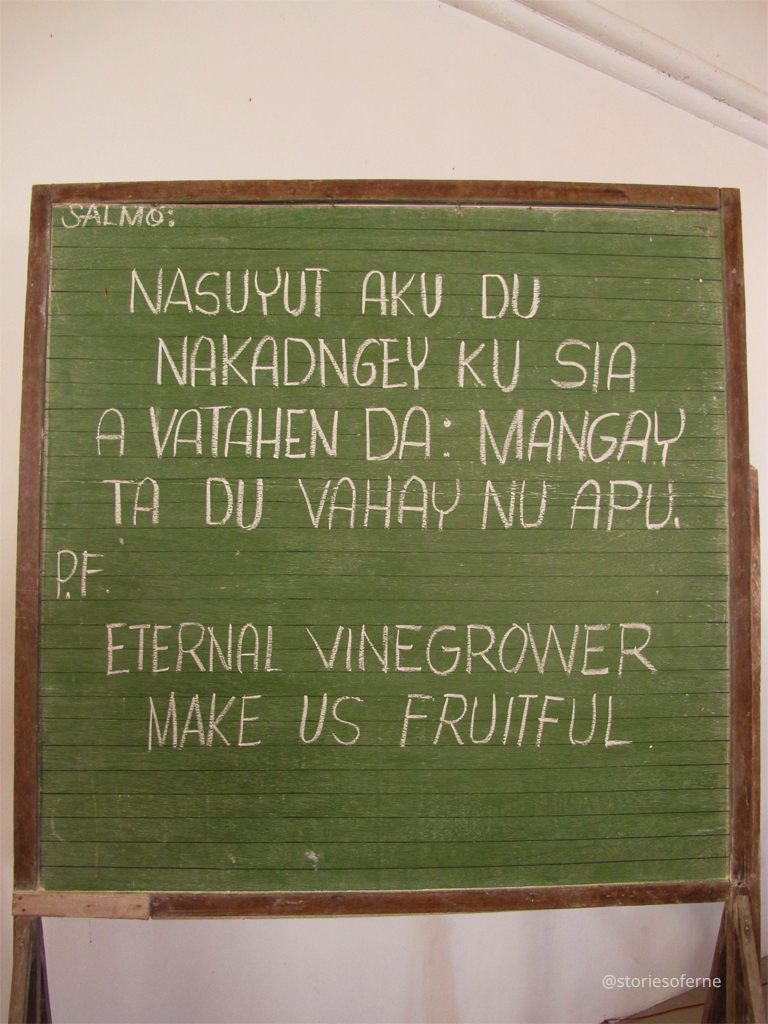 SALMO:
NASUYUT AKU DU
NAKADNGEY KU SIA
A VATAHEN DA: MANGAY
TA DU VAHAY NU APU.
P.F.
ETERNAL VINEGROWER
MAKE US FRUITFUL
@storiesoferne